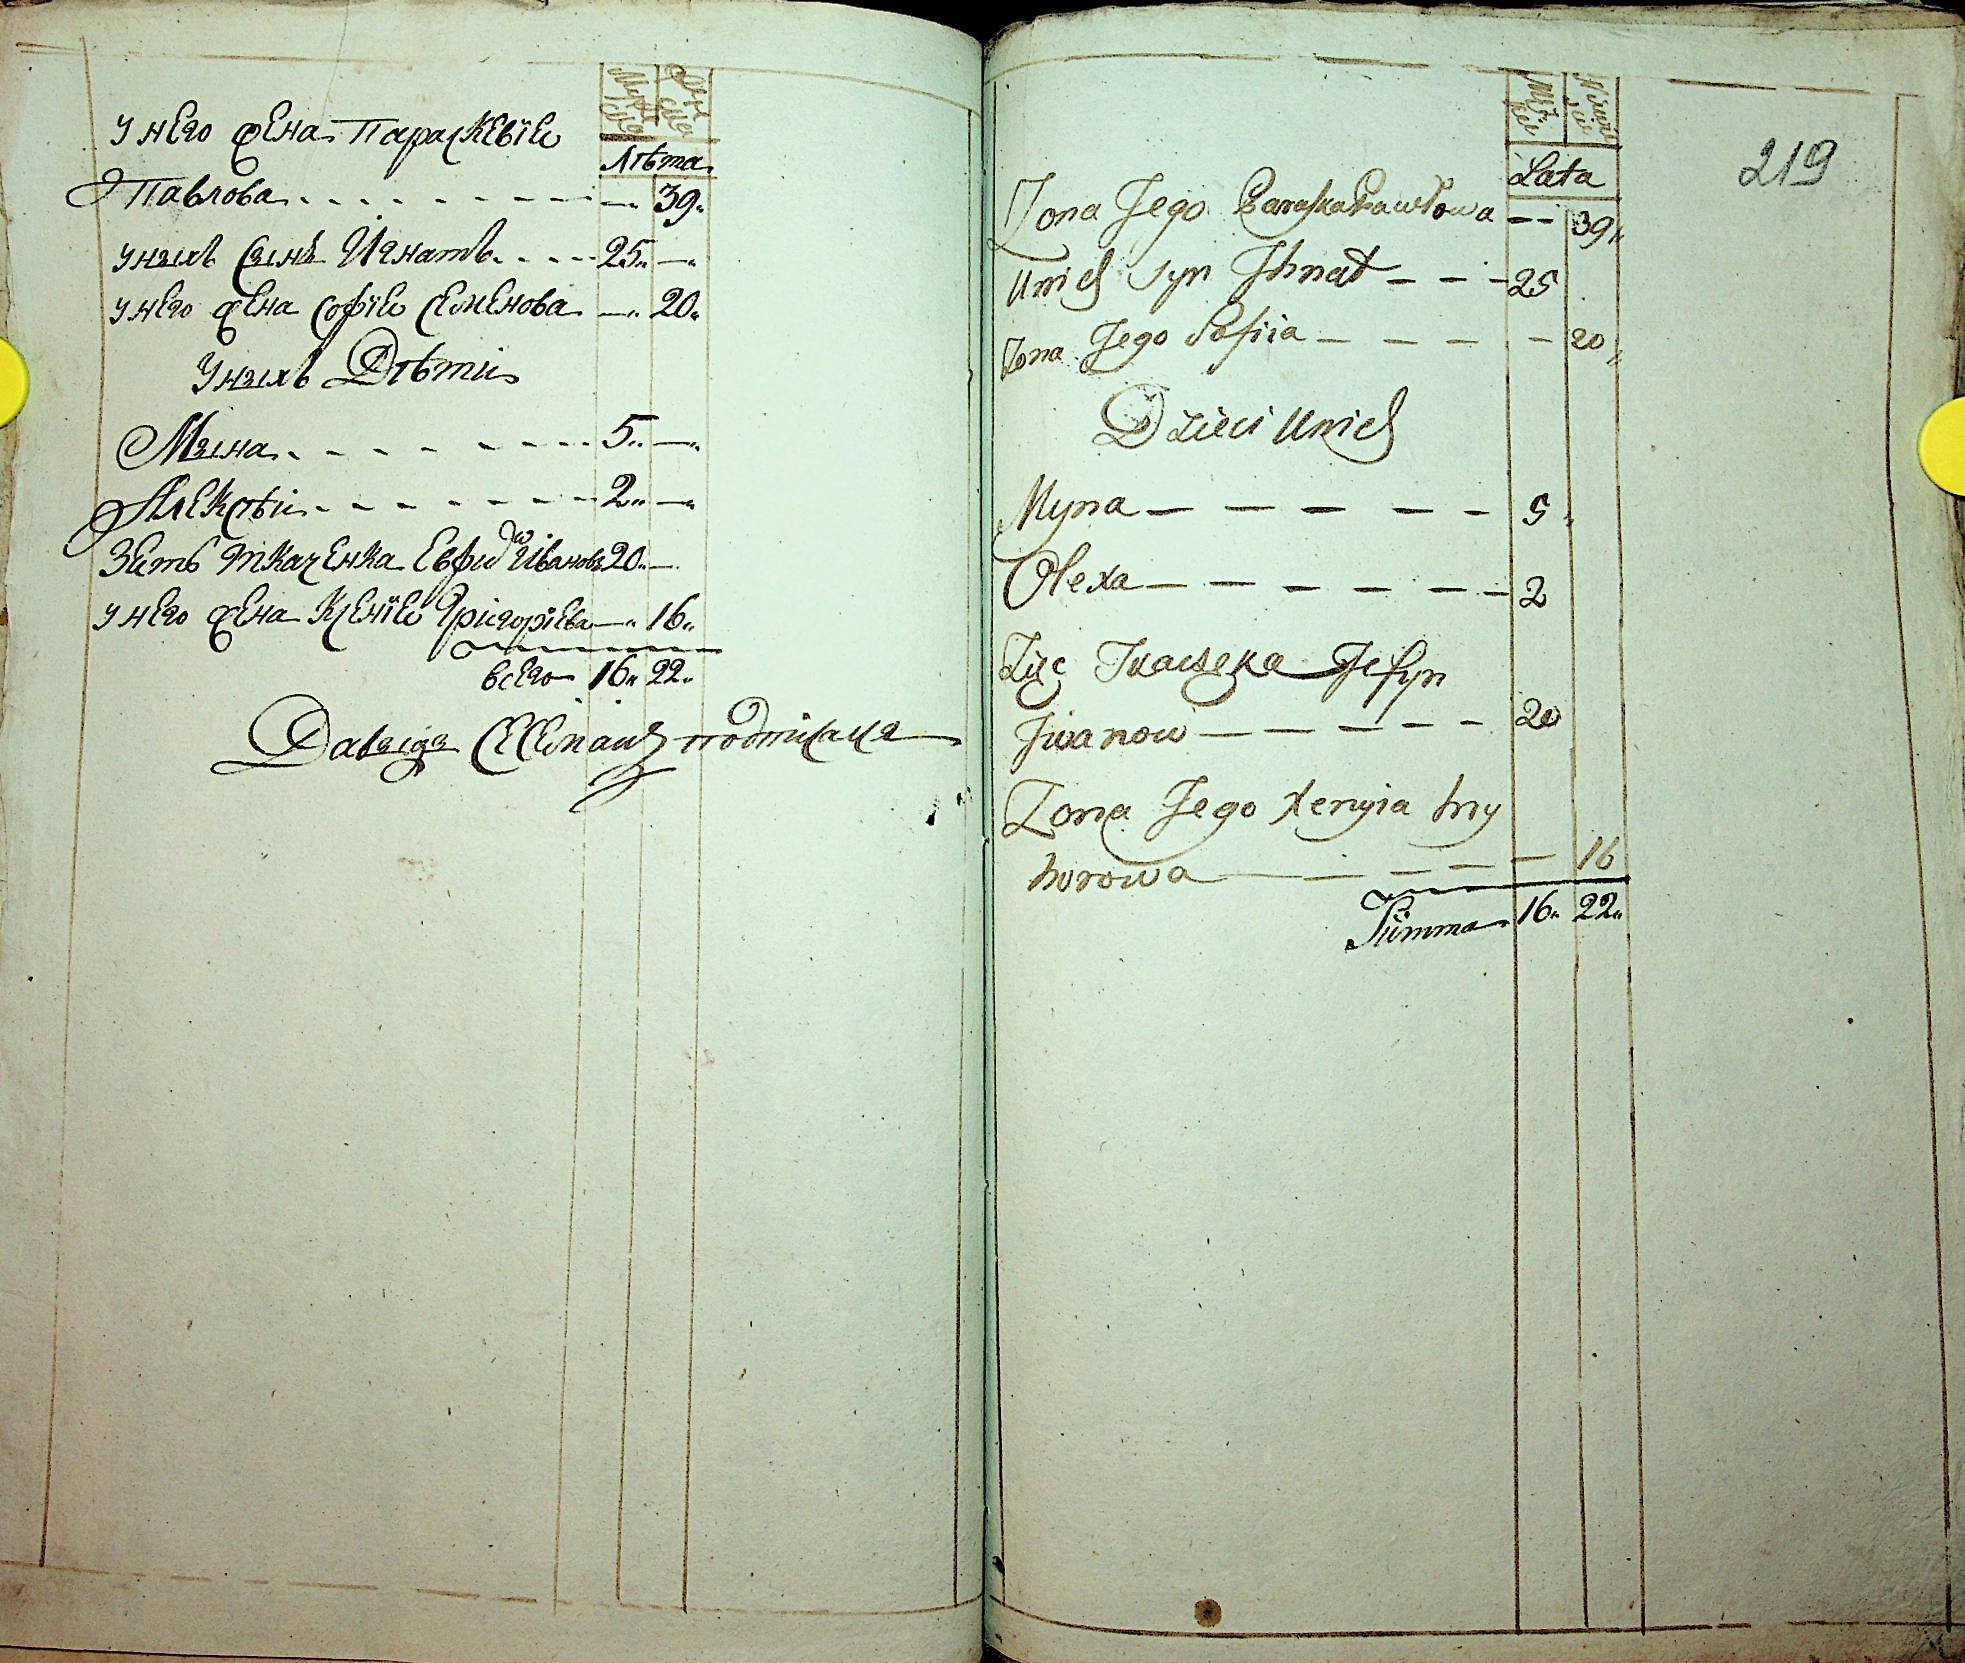 Лѣта
у него жена Параскевїя
Павлова - - - - - - - - — 39
у ныхъ сынъ Игнатъ - - - - 25 —
у него жена Софїя Семенова — 20
У ныхъ Дѣти
Мына - - - - - - - 5 —
Алексѣй - - - - - - - 2 —
Зять Ткаченка Евфи Ивановъ 20 —
у него жена Ксенїя Григорїева — 16
всего 16 22
219
Lata
Żona Jego Paraska Pawłowa — — 39
Unich Syn Ihnat — — — 25
Żona Jego Sofiia — — — — — 20
Dzieci Unich
Myna — — — — — — 5
Olexa — — — — — — 2
Zięć Tkaczeka Jefym
Iwanow — — — — — 20
Żona Jego Xenyia Hry
horowa — — — — — 16
Summa 16 22